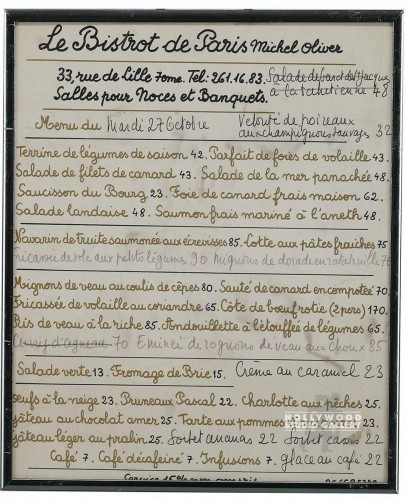 Le Bistrot de Paris Michel Oliver
33, rue de Lille 7ème. Tél: 261.16.83. Salade de
à la tahitienne 48
Salles pour Noces et Banquets.
Menu du Mardi 27 Octobre Velouté de poireaux
aux champignons sauvages 32
Terrine de légumes de saison 42. Parfait de foies de volaille 43.
Salade de filets de canard 43. Salade de la mer panachée 48.
Saucisson du Bourg 23. Foie de canard frais maison 62.
Salade landaise 48. Saumon frais mariné à l'aneth 48.
Navarin de truite saumonée aux écrevisses 85. Lotte aux pâtes fraîches 75
Fricassée de sole aux petits légumes 90 Mignons de dorade en ratatouille 7
Mignons de veau au coulis de cèpes 80. Sauté de canard en compotée 70.
Fricassée de volaille au coriandre 65. Côte de bœuf rotie (2 pers) 170.
Ris de veau à la riche 85. Andouillette à l'étouffée de légumes 65.
70 Emincé de rognons de veau aux choux 85
Salade verte 13. Fromage de Brie 15. Crème au caramel 23
oeufs à la neige 23. Pruneaux Pascal 22. Charlotte aux pêches 25.
gâteau au chocolat amer 25. Tarte aux pommes
gâteau léger au pralin 25. Sorbet ananas 22 Sorbet cassis 22
Café 7. Café décaféiné 7. Infusions 7. glace au café 22
HOLLYWOOD
STUDIO GALLERY